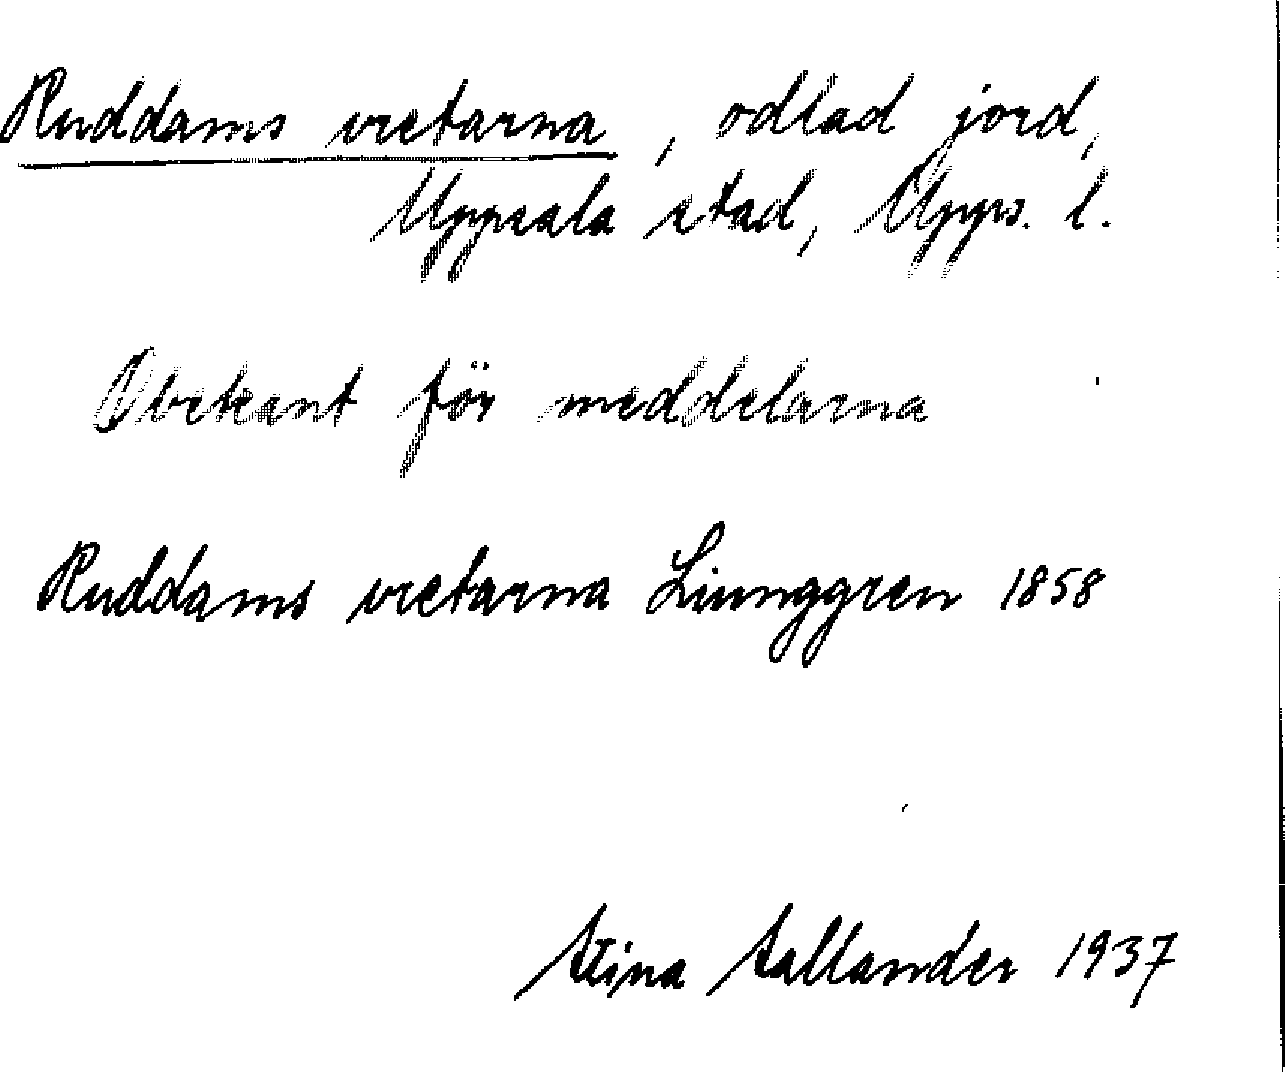 Ruddams vretarna, odlad jord,
Uppsala stad, Upps. l.
Obekant för meddelarna
Ruddams vretarna Liunggren 1858
Stina Sallander 1937